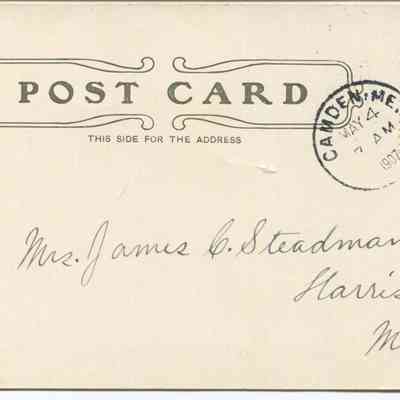 POST CARD
THIS SIDE FOR THE ADDRESS
CAMDEN, ME.
MAY 4
7 AM
1907
Mrs. James C. Steadman
Harris
M